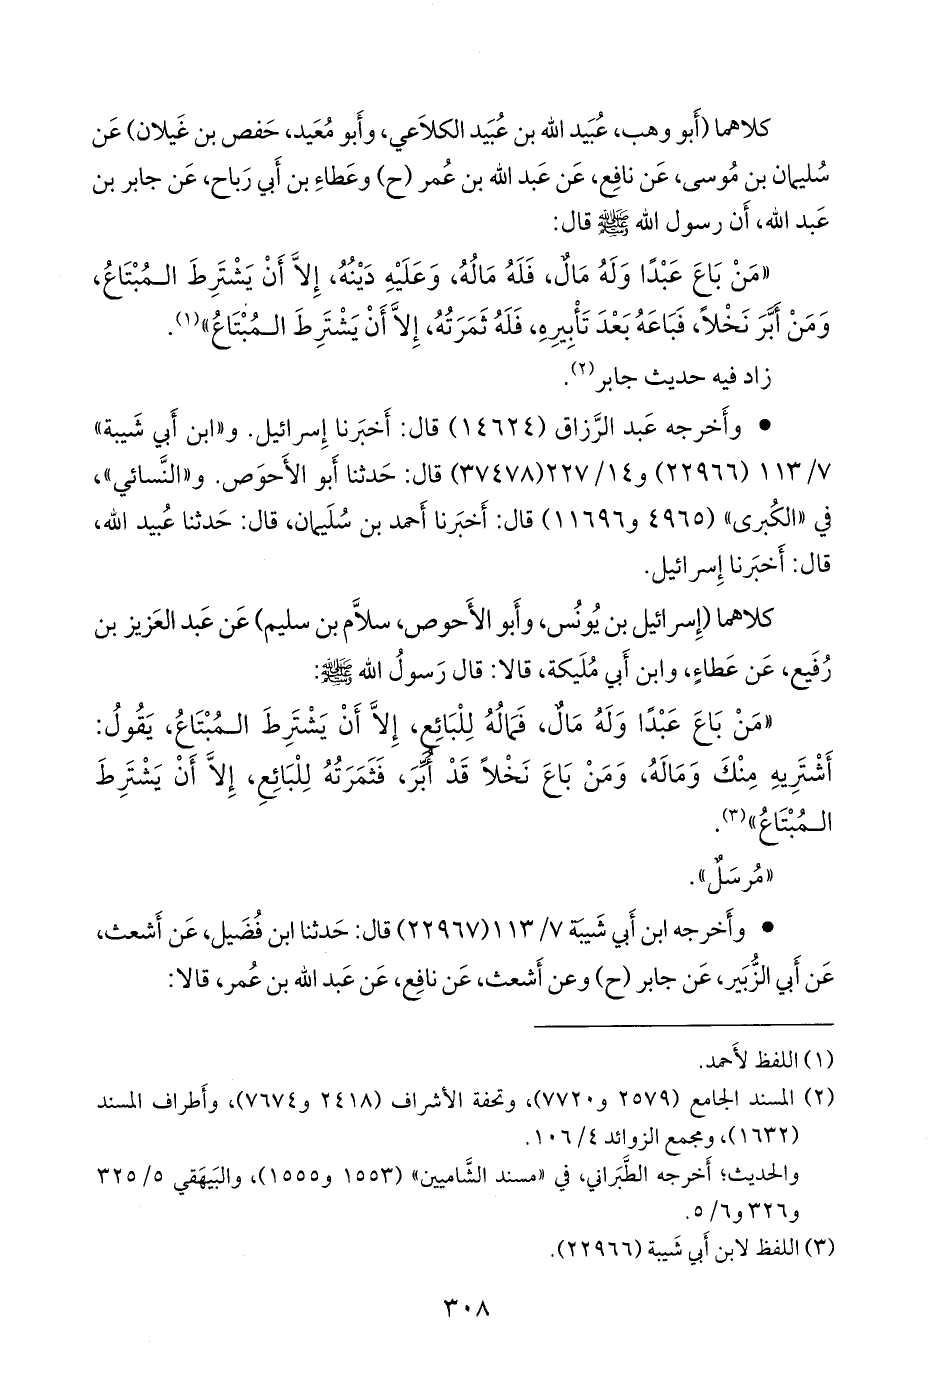 كلاهما (أَبو وهب، عُبَيد الله بن عُبَيد الكلاَعي، وأَبو مُعَيد، حَفص بن غَيلان) عَن
سُليمان بن مُوسى، عَن نافِع، عَن عَبد الله بن عُمر (ح) وعَطاءِ بن أَبي رَباح، عَن جابر بن
عَبد الله، أَن رسول الله ﷺ قال:
«مَنْ بَاعَ عَبْدًا وَلَهُ مَالٌ، فَلَهُ مَالُهُ، وَعَلَيْهِ دَيْنُهُ، إِلاَّ أَنْ يَشْتَرِطَ الـمُبْتَاعُ،
وَمَنْ أَبَّرَ نَخْلاً، فَبَاعَهُ بَعْدَ تَأْبِيرِهِ، فَلَهُ ثَمَرَتُهُ، إِلاَّ أَنْ يَشْتَرِطَ الـمُبْتَاعُ»(١).
زاد فيه حديث جابر(٢).
• وأَخرجه عَبد الرَّزاق (١٤٦٢٤) قال: أَخبَرنا إِسرائيل. و«ابن أَبي شَيبة»
٧/ ١١٣ (٢٢٩٦٦) و١٤/ ٢٢٧(٣٧٤٧٨) قال: حَدثنا أَبو الأَحوَص. و«النَّسائي»،
في «الكُبرى» (٤٩٦٥ و١١٦٩٦) قال: أَخبَرنا أَحمد بن سُلَيمان، قال: حَدثنا عُبيد الله،
قال: أَخبَرنا إِسرائيل.
كلاهما (إِسرائيل بن يُونُس، وأَبو الأَحوص، سلاَّم بن سليم) عَن عَبد العَزيز بن
رُفَيع، عَن عَطاءٍ، وابن أَبي مُلَيكة، قالا: قال رَسولُ الله ﷺ:
«مَنْ بَاعَ عَبْدًا وَلَهُ مَالٌ، فَمَالُهُ لِلْبَائِعِ، إِلاَّ أَنْ يَشْتَرِطَ الـمُبْتَاعُ، يَقُولُ:
أَشْتَرِيهِ مِنْكَ وَمَالَهُ، وَمَنْ بَاعَ نَخْلاً قَدْ أُبِّرَ، فَثَمَرَتُهُ لِلْبَائِعِ، إِلاَّ أَنْ يَشْتَرِطَ
الـمُبْتَاعُ»(٣).
«مُرسَلٌ».
• وأَخرجه ابن أَبي شَيبَة ٧/ ١١٣(٢٢٩٦٧) قال: حَدثنا ابن فُضَيل، عَن أَشعث،
عَن أَبي الزُّبَير، عَن جابر (ح) وعن أَشعث، عَن نافِع، عَن عَبد الله بن عُمر، قالا:
(١) اللفظ لأَحمد.
(٢) المسند الجامع (٢٥٧٩ و٧٧٢٠)، وتحفة الأشراف (٢٤١٨ و٧٦٧٤)، وأَطراف المسند
(١٦٣٢)، ومجمع الزوائد ٤/ ١٠٦.
والحديث؛ أَخرجه الطَّبَراني، في «مسند الشَّاميين» (١٥٥٣ و١٥٥٥)، والبَيهَقي ٥/ ٣٢٥
و٣٢٦ و٦/ ٥.
(٣) اللفظ لابن أَبي شَيبة (٢٢٩٦٦).
٣٠٨